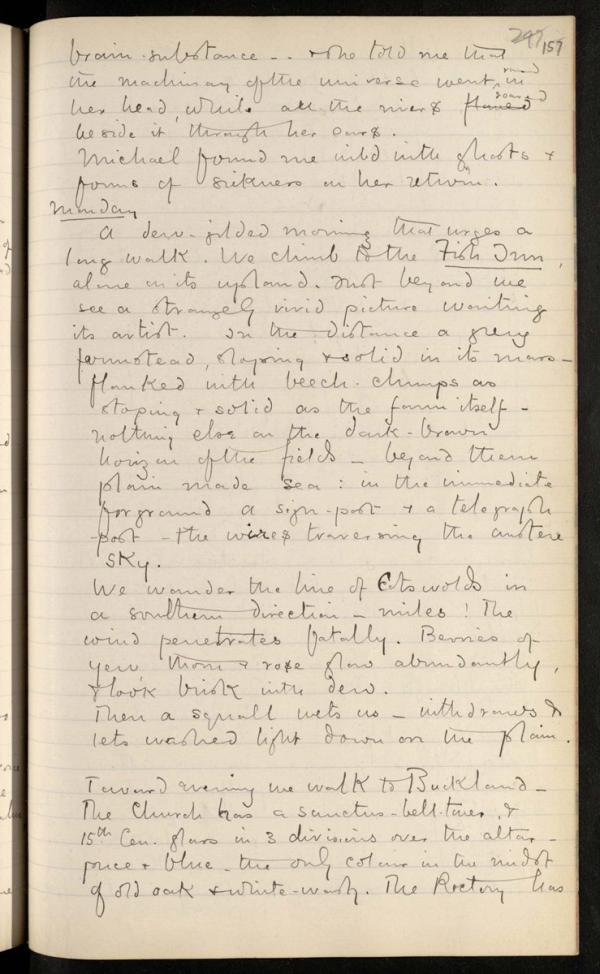 247 157
brain-substance - - & who told me that
the machinary of the universe went ^round in
her head, while all the rivers flowed ^soared
beside it through her ears.
Michael found me wild with ghosts &
forms of sickness on her return.
Monday
A dew-gilded morning that urges a
long walk. We climb to the Fish Inn,
alone on its upland. Just beyond we
see a strangely vivid picture wanting
its artist. In the distance a grey
farmstead, sloping & solid in its mass -
flanked with beech-clumps as
sloping & solid as the farm itself -
nothing else on the dark-brown
horizon of the fields - beyond them
plain made sea: in the immediate
forground a sign-post & a telegraph
-post - the wires traversing the austere
sky.
We wander the line of Cotswolds in
a southern direction - miles! The
wind penetrates fatally. Berries of
yew thorn & rose glow abundantly,
& look brisk with dew.
Then a squall wets us - withdraws &
lets washed light down on the plain.
Toward evening we walk to Buckland -
The Church has a sanctus-bell-tower, &
15th Cen. glass in 3 divisions over the altar -
puce & blue - the only colour in the midst
of old oak & white-wash. The Rectory has